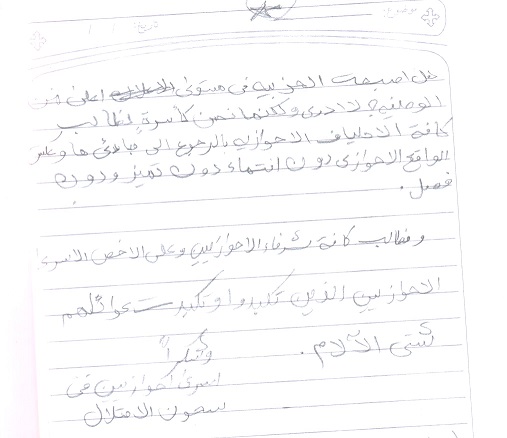 موضوع: تاريخ: / /
هل اصبحت الحزبية في مستوى اعلى من
الوطنية؟ لا ادري ولكننا نحن كأسرة نطالب
كافة الاطياف الاحوازية بالرجوع الى مبادئها وعلى
الواقع الاحوازي دون انتماء دون تميز ودون
فصل.
ونطالب كافة شرفاء الاحوازيين وعلى الاخص الاسرى
الاحوازيين الذين تكبدوا وتكبدت عوائلهم
شتى الآلام.
وشكراً
اسرى احوازيين في
سجون الاحتلال